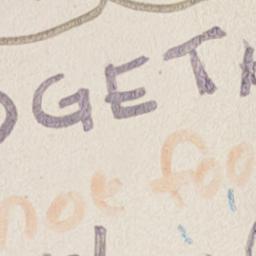 OGETH
not foo